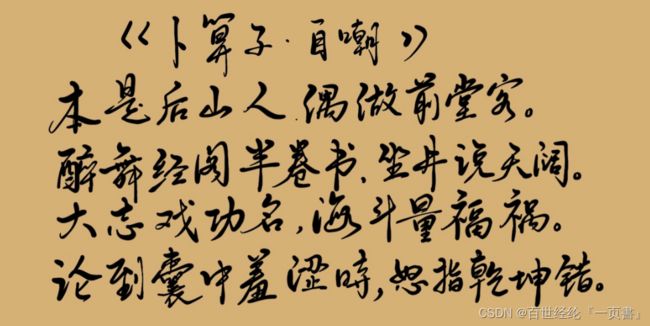 《卜算子·自嘲》
本是后山人,偶做前堂客。
醉舞经阁半卷书,坐井说天阔。
大志戏功名,海斗量福祸。
论到囊中羞涩时,怒指乾坤错。
CSDN @百世经纶『一页書』